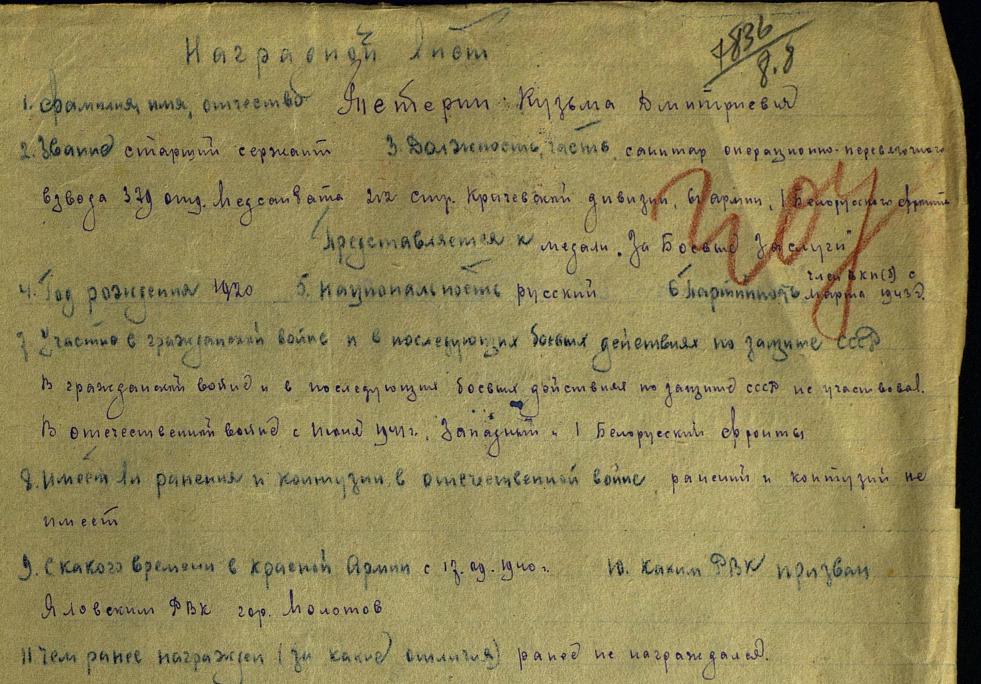 Наградной лист
7836
8.8
1. Фамилия, имя, отчество Тетерин Кузьма Дмитриевич
2. Звание старший сержант 3. Должность, часть санитар операционно-перевязочного
взвода 379 отд. Медсанбата 212 стр. Кричевской дивизии, 61 армии, 1 Белорусского фронта
Представляется к медали "За Боевые Заслуги"
4. Год рождения 1920 5. Национальность русский 6 Партийность член ВКП(б) с
марта 1943г.
7. Участие в гражданской войне и в последующих боевых действиях по защите СССР
В гражданской войне и в последующих боевых действиях по защите СССР не участвовал.
В отечественной войне с июня 1941г., Западный и 1 Белорусский фронты
8. Имеет ли ранения и контузии в отечественной войне ранений и контузий не
имеет
9. С какого времени в красной Армии с 17.09.1940г. 10. Каким РВК призван
РВК гор. Молотов
11 Чем ранее награжден (за какие отличия) ранее не награждался.